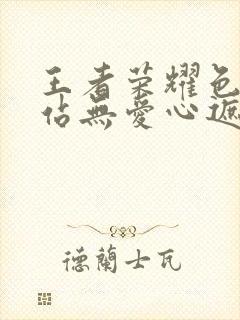 王者荣耀色
佔無愛心遮
德蘭士瓦